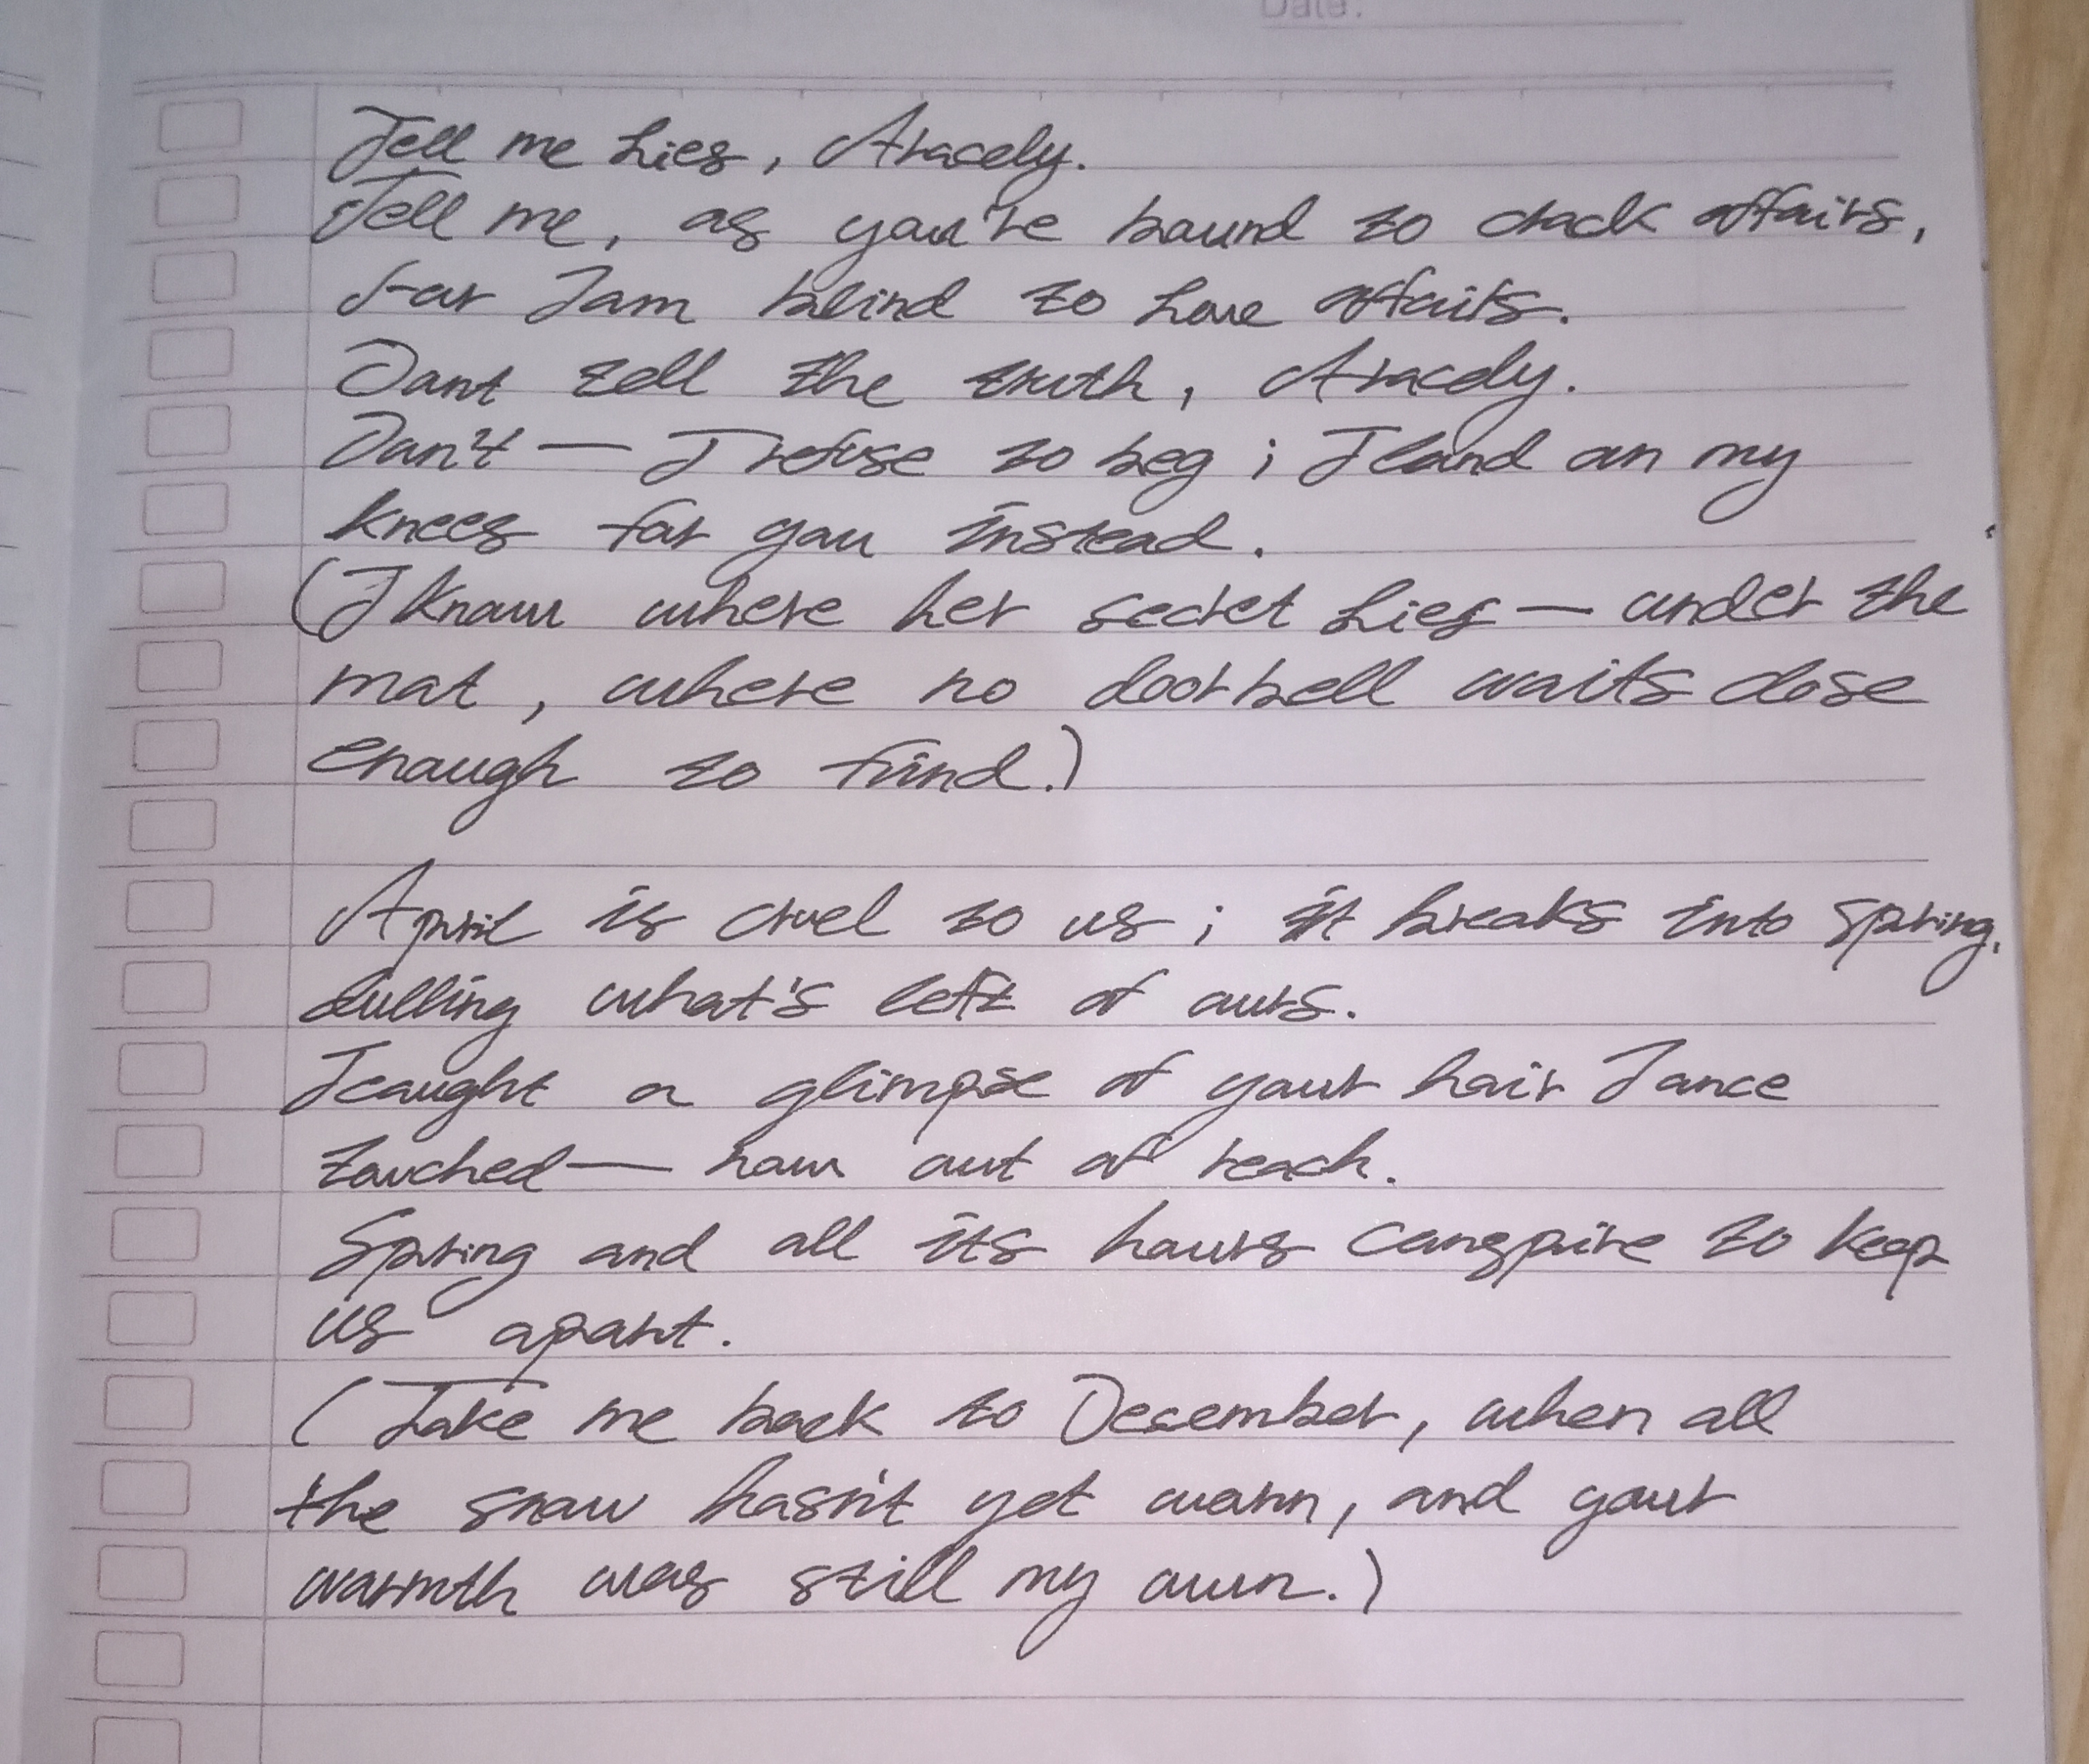 Date:
Tell me lies, Aracely.
Tell me, as you're bound to clock affairs,
For I am blind to love affairs.
Dont tell the truth, Aracely.
Don't — I refuse to beg; I land on my
knees for you instead.
(I know where her secret lies — under the
mat, where no doorbell waits close
enough to find.)
April is cruel to us; it breaks into spring,
dulling what's left of ours.
I caught a glimpse of your hair I once
touched — now out of reach.
Spring and all its hours conspire to keep
us apart.
(Take me back to December, when all
the snow hasn't yet worn, and your
warmth was still my own.)